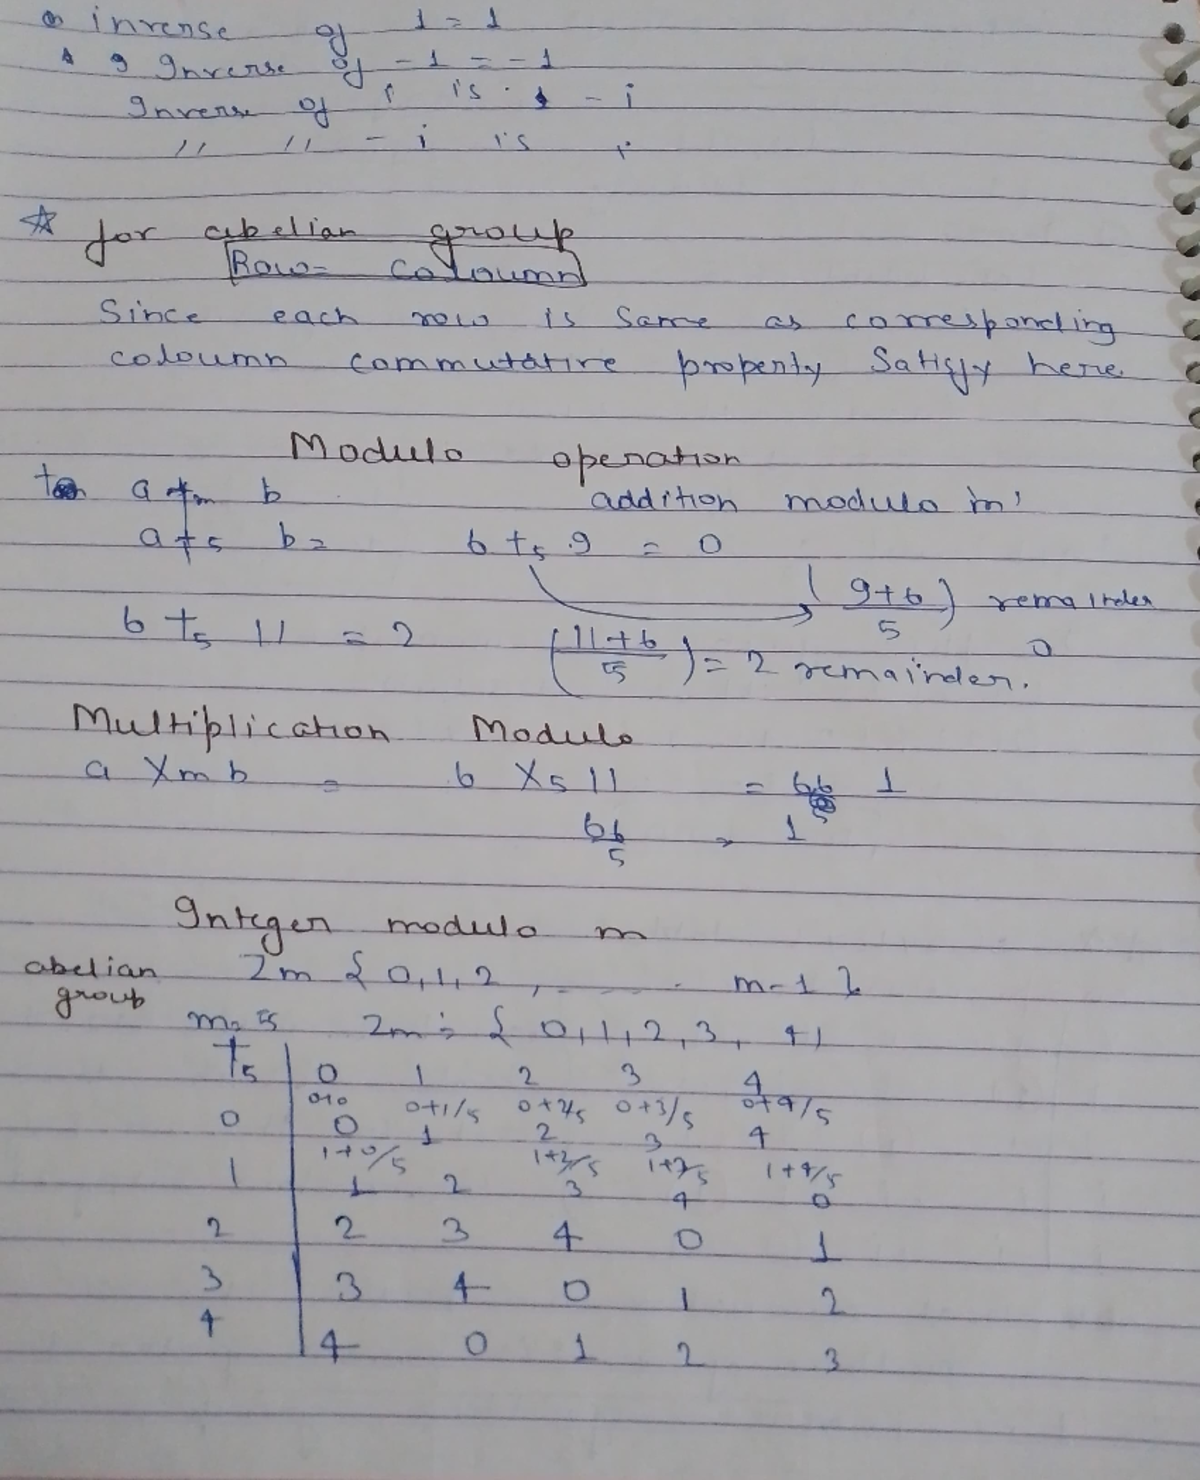 inverse of 1 = 1
Inverse of -1 = -1
Inverse of i is -i
" " -i is i
☆ for abelian group
Row = coloumn
Since each row is same as corresponding
coloumn commutative property satisfy here
Modulo operation
a +m b addition modulo 'm'
a +5 b = 6 +5 9 = 0
(9+6/5) remainder 0
6 +5 11 = 2 (11+6/5) = 2 remainder.
Multiplication Modulo
a Xm b = 6 X5 11 = 66/5 1
66/5 → 1
Integer modulo m
abelian group Zm { 0, 1, 2, ....... m-1 }
m = 5 Zm = { 0, 1, 2, 3, 4 }
+5 0 1 2 3 4
0+0 0+1/5 0+2/5 0+3/5 0+4/5
0 0 1 2 3 4
1+0/5 1+2/5 1+3/5 1+4/5
1 1 2 3 4 0
2 2 3 4 0 1
3 3 4 0 1 2
4 4 0 1 2 3